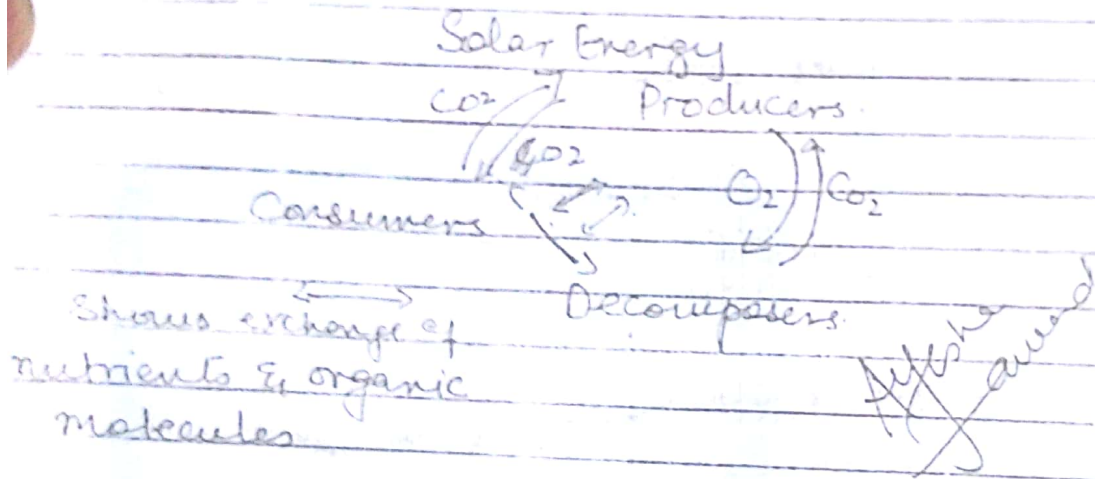 Solar Energy
CO2 Producers
CO2
O2 CO2
Consumers
Decomposers
Shows exchange of
nutrients & organic
molecules